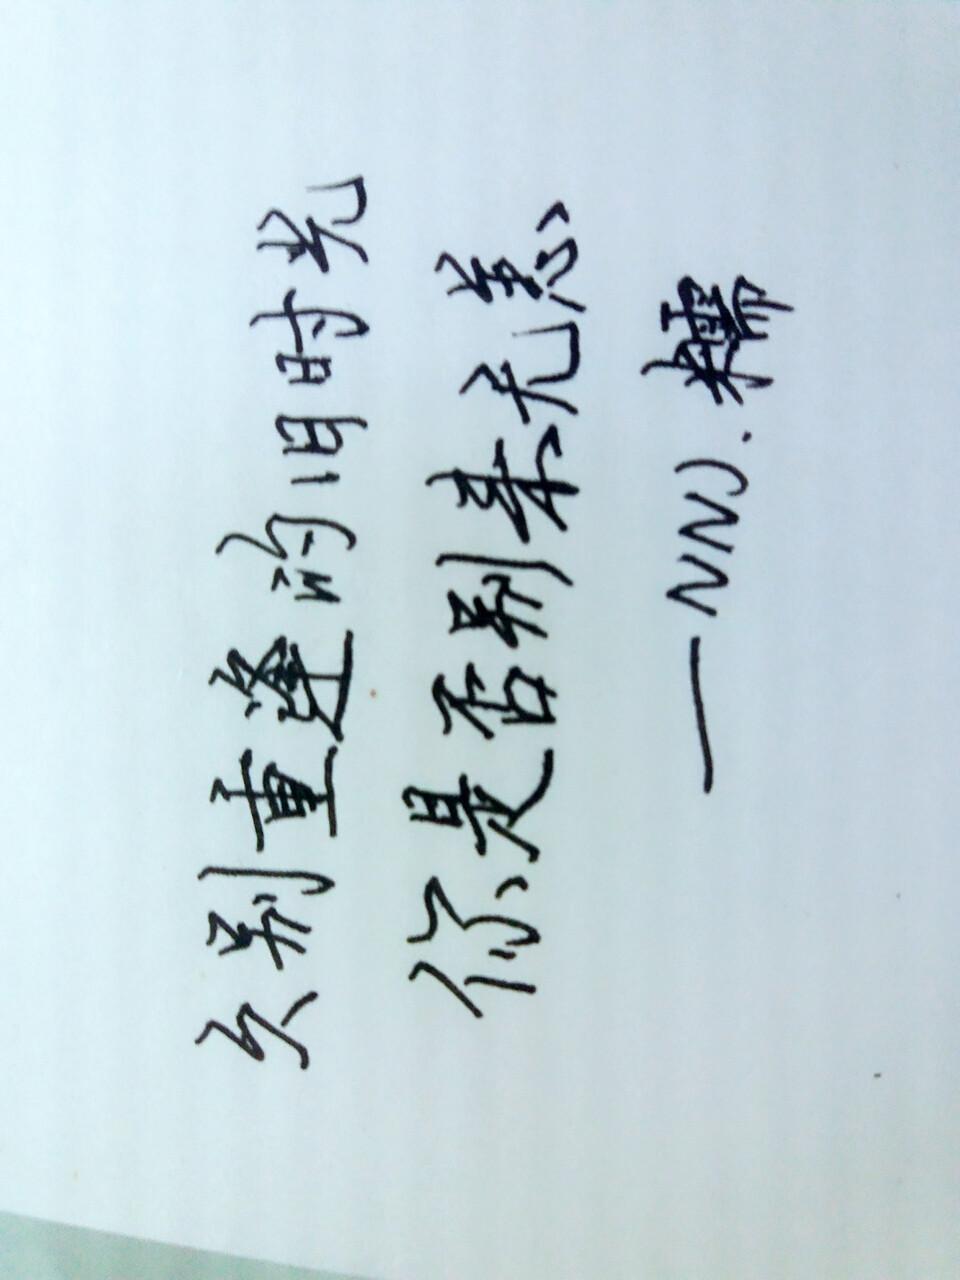 久别重逢的旧时光
你是否别来无恙
——NNJ.糯